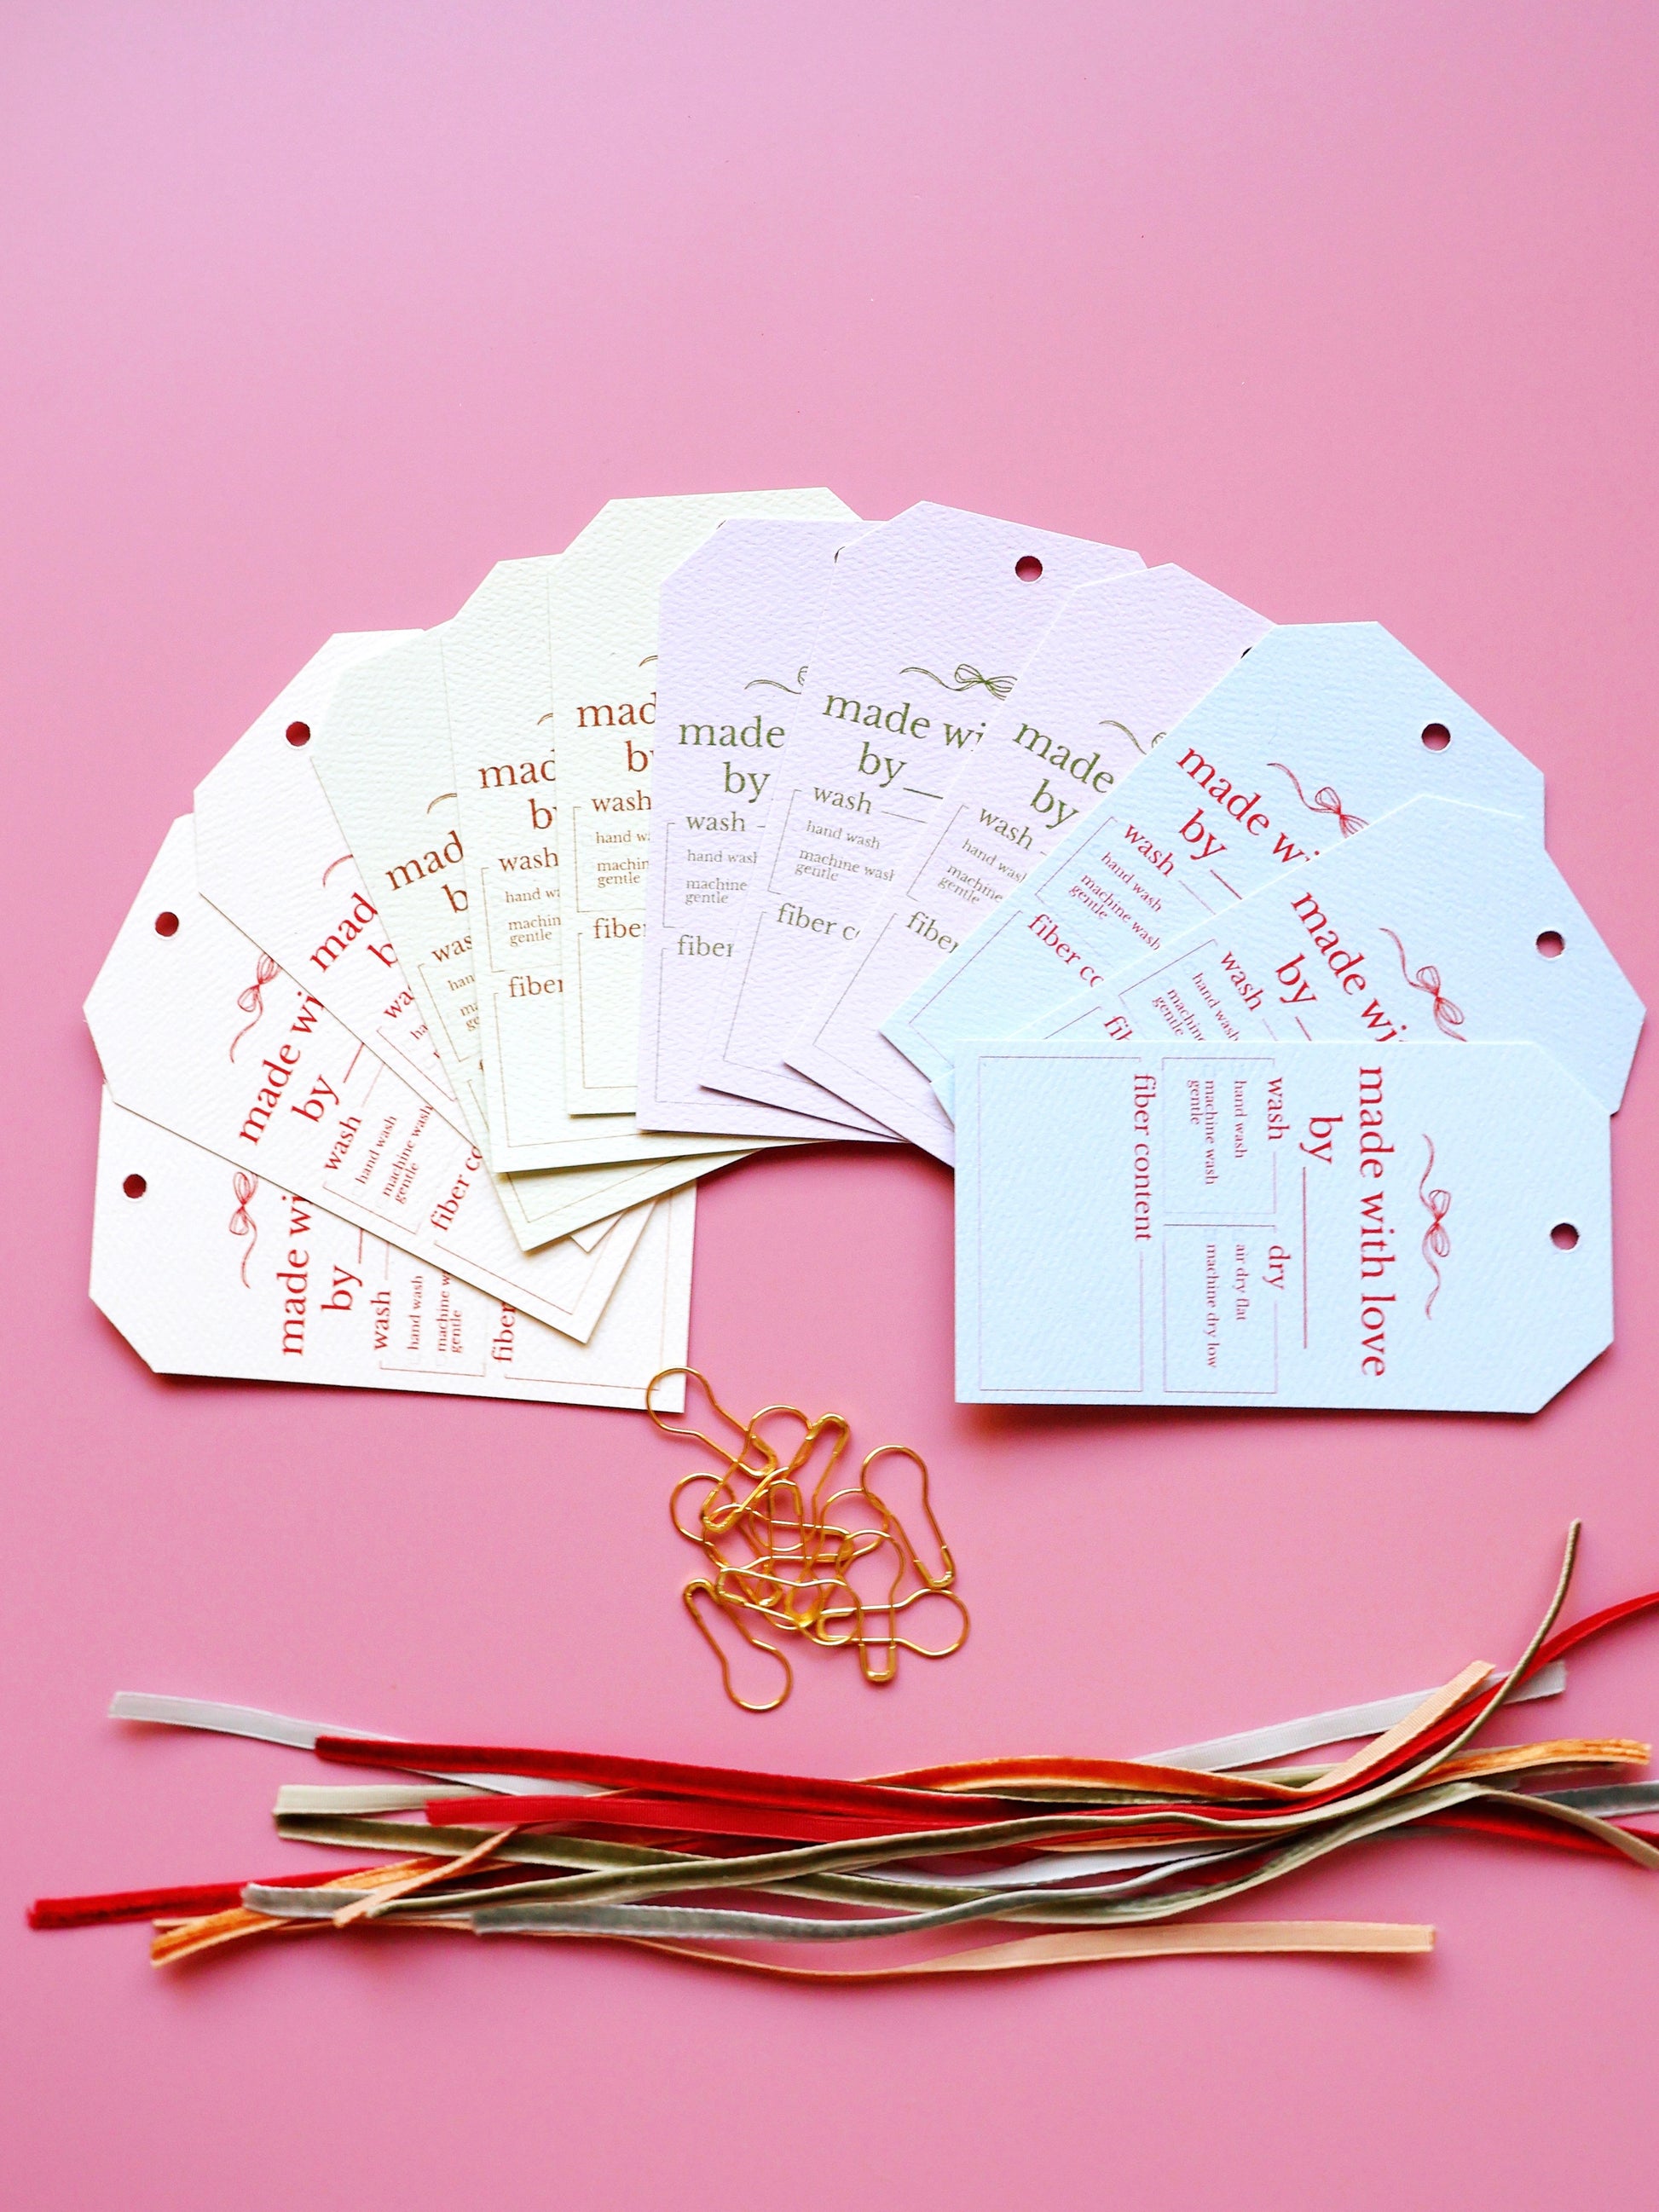 made wi
by
wash
hand wash
machine w
gentle
fiber
made wi
by
wash
hand wash
machine wash
gentle
fiber co
mad
b
wa
ha
mad
b
was
han
ma
ge
mad
b
wash
hand w
machin
gentle
fiber
mad
by
wash
hand w
machin
gentle
fiber
made
by
wash
hand wash
machine
gentle
fiber
made wi
by
wash
hand wash
machine wash
gentle
fiber co
made
by
wash
hand wash
machine
gentle
fiber
made wi
by
wash
hand wash
machine wash
gentle
fiber co
made wi
by
wash
hand wash
machine
gentle
fib
made with love
by
wash
hand wash
machine wash
gentle
dry
air dry flat
machine dry low
fiber content